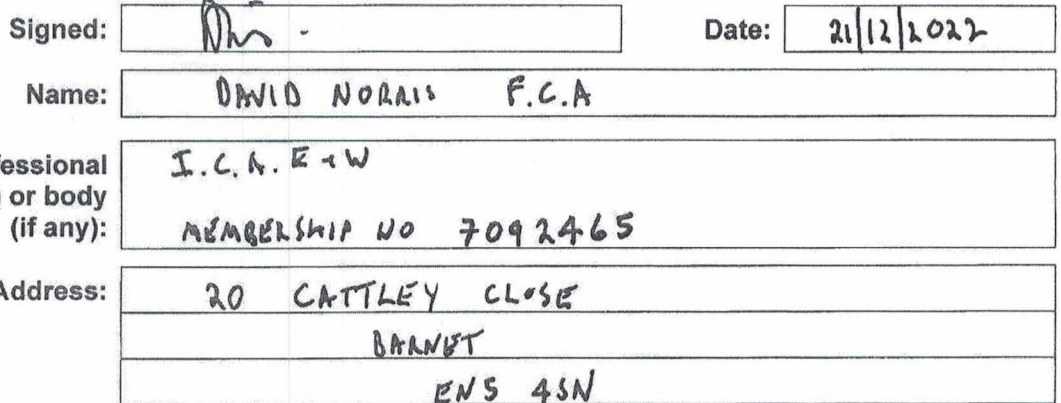 Signed: Date: 21/12/2022
Name: DAVID NORRIS F.C.A
fessional I.C.A. E + W
or body
(if any): MEMBERSHIP NO 7092465
Address: 20 CATTLEY CLOSE
BARNET
EN5 4SN